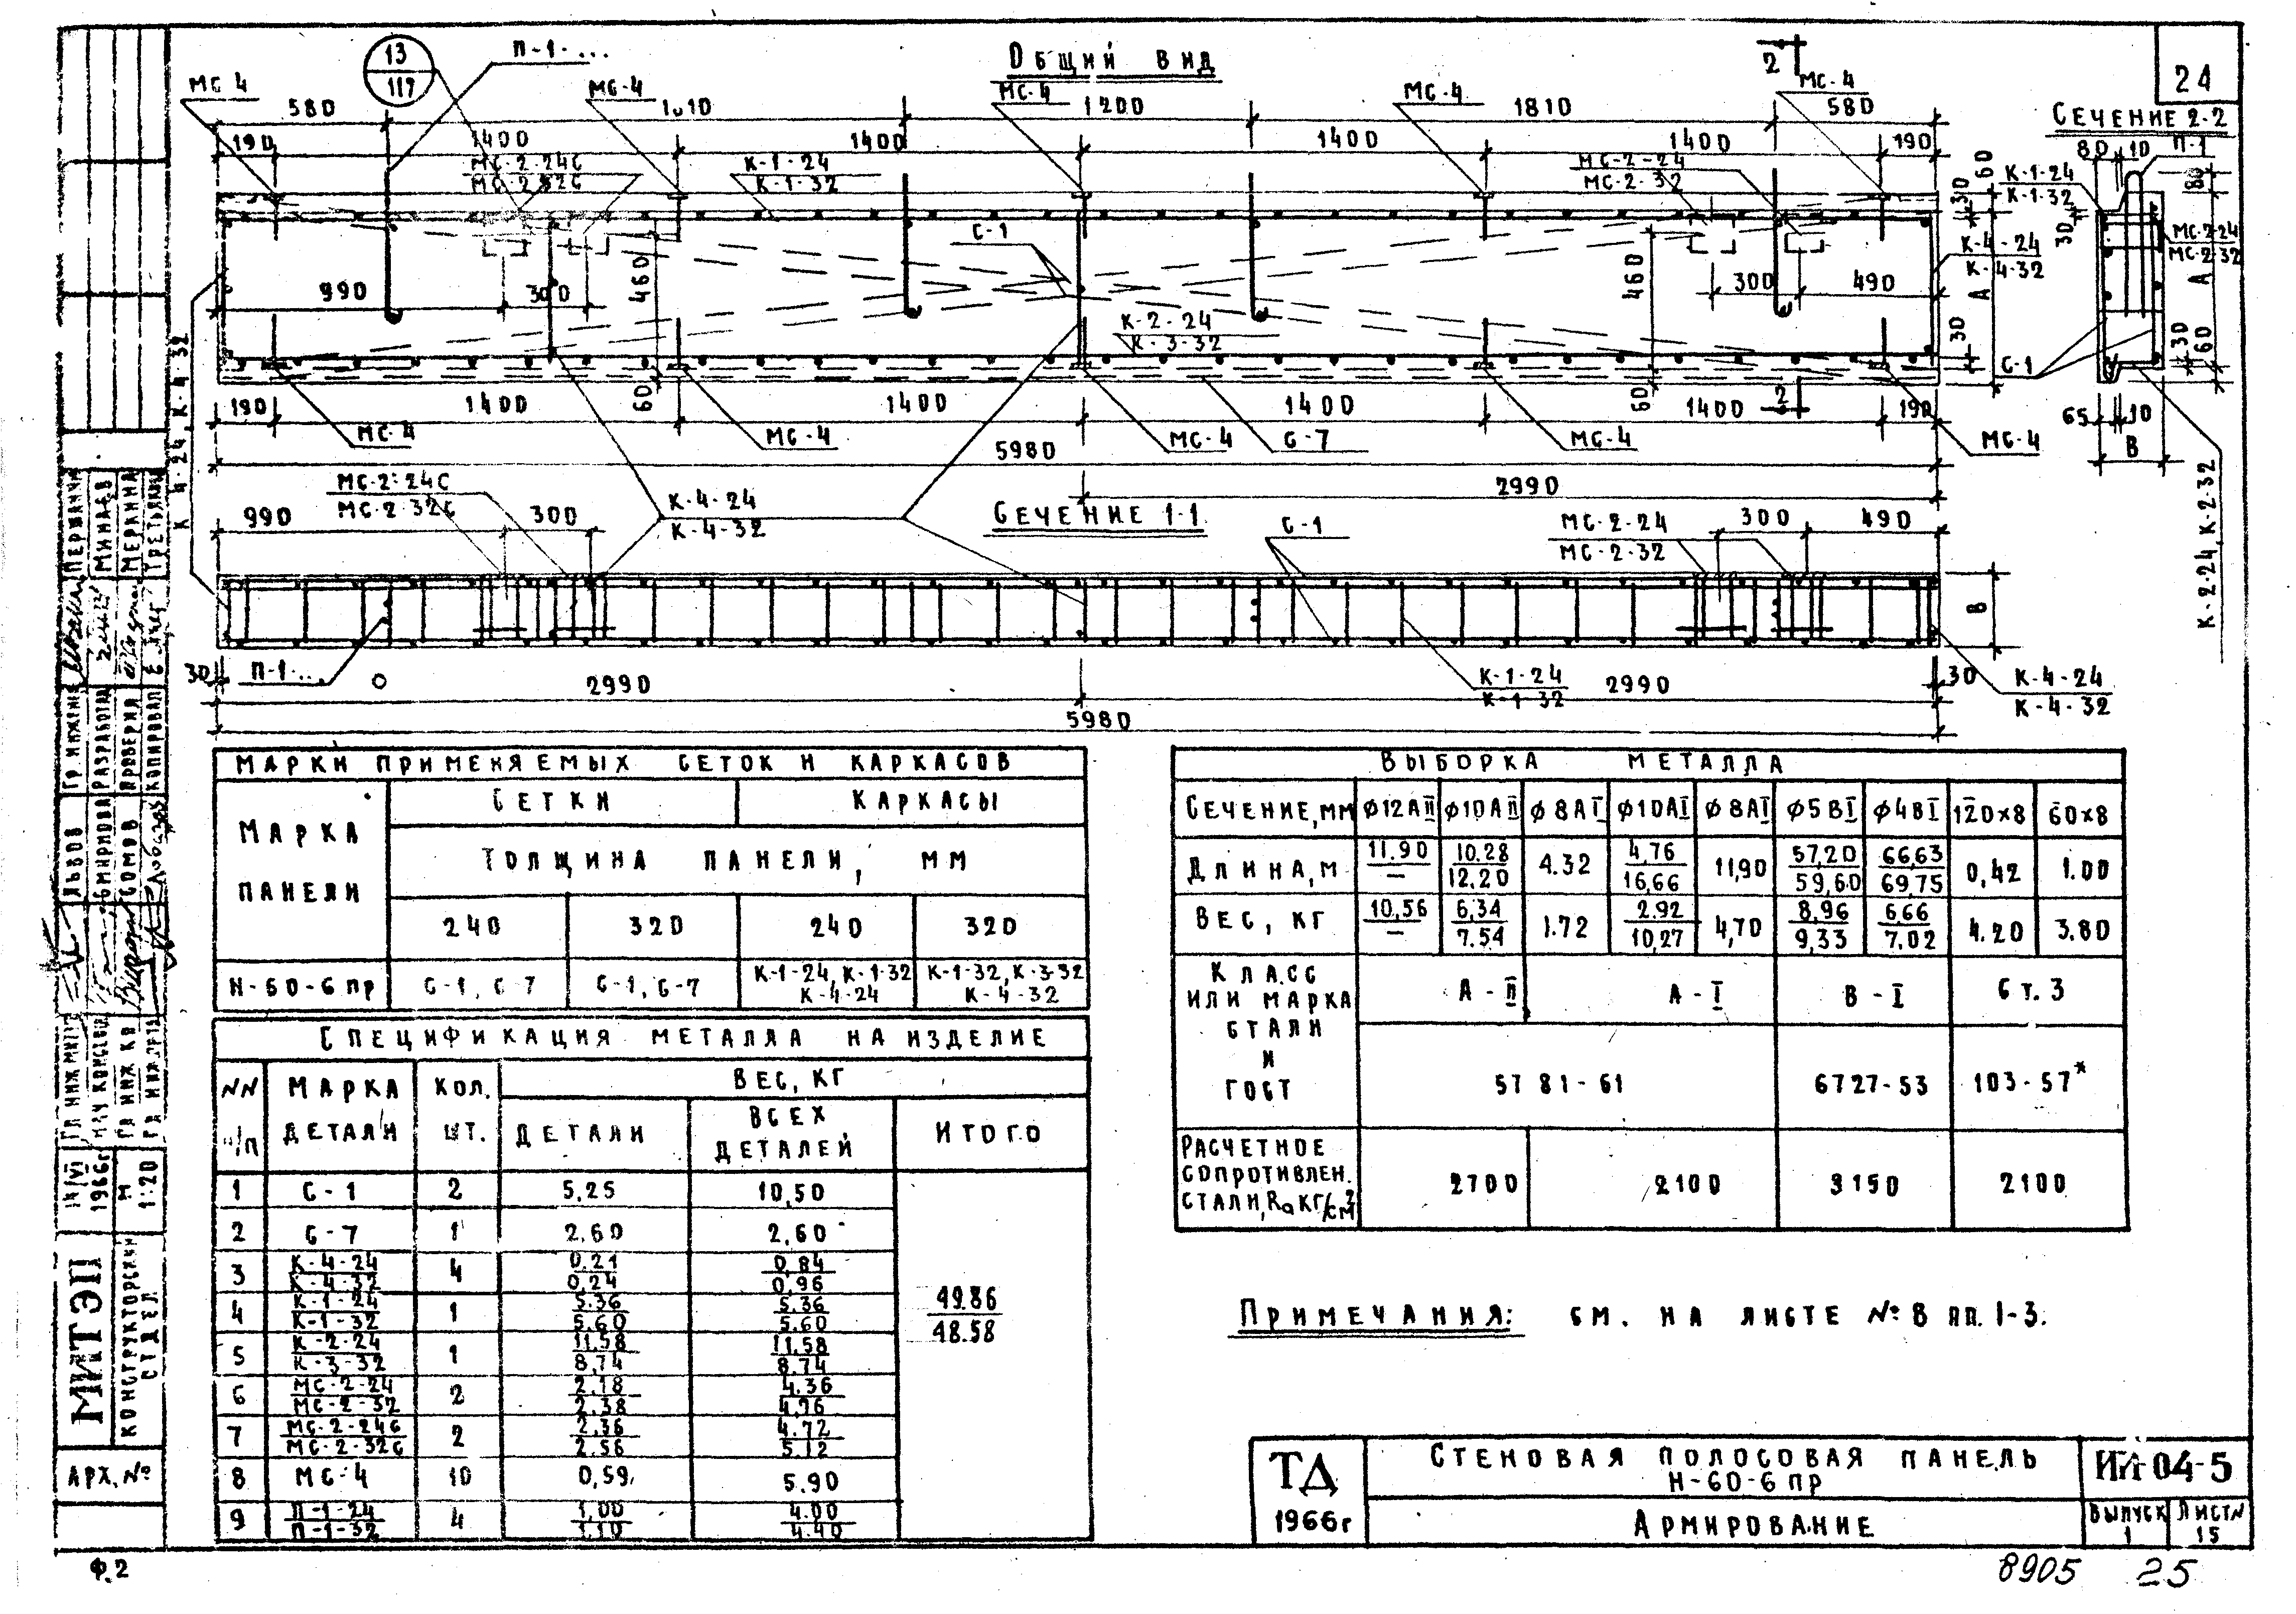 24
Общий вид
13
117
П-1-...
МС-4
МС-4
МС-4
МС-4
МС-4
580
1200
1810
580
190
1400
1400
1400
1400
190
МС-2-24С
МС-2-32С
К-1-24
К-1-32
МС-2-24
МС-2-32
С-1
К-4-24
К-4-32
990
300
460
460
300
490
А
К-2-24
К-3-32
60
30
30
60
60
190
1400
1400
1400
1400
190
МС-4
МС-4
МС-4
С-7
МС-4
МС-4
5980
2990
К-4-24, К-4-32
2
2
Сечение 2-2
80
10
П-1
80
К-1-24
К-1-32
30
МС-2-24
МС-2-32
А
С-1
30
60
65
10
В
К-2-24, К-2-32
Сечение 1-1
МС-2-24С
МС-2-32С
990
300
К-4-24
К-4-32
С-1
МС-2-24
МС-2-32
300
490
В
30
П-1-...
2990
К-1-24
К-1-32
2990
30
К-4-24
К-4-32
5980
Марки применяемых сеток и каркасов
Марка панели
Сетки
Каркасы
Толщина панели, мм
240
320
240
320
Н-60-6 пр
С-1, С-7
С-1, С-7
К-1-24, К-1-32
К-4-24
К-1-32, К-3-32
К-4-32
Спецификация металла на изделие
NN п/п
Марка детали
Кол. шт.
Вес, кг
детали
всех деталей
Итого
1 С-1 2 5,25 10,50
2 С-7 1 2,60 2,60
3 К-4-24 4 0,21 0,84
К-4-32 0,24 0,96
4 К-1-24 1 5.36 5.36
К-1-32 5.60 5.60
5 К-2-24 1 11.58 11.58
К-3-32 8,74 8.74
6 МС-2-24 2 2.18 4.36
МС-2-32 2.38 4.76
7 МС-2-24С 2 2.36 4.72
МС-2-32С 2.56 5.12
8 МС-4 10 0,59 5.90
9 П-1-24 4 1,00 4.00
П-1-32 1.10 4.40
49.86
48.58
Выборка металла
Сечение, мм ϕ12АII ϕ10АII ϕ8АI ϕ10АI ϕ8АI ϕ5ВI ϕ4ВI 120×8 60×8
Длина, м 11.90 10.28 4.32 4,76 11,90 57,20 66,63 0,42 1.00
— 12.20 16,66 59,60 69,75
Вес, кг 10,56 6,34 1.72 2.92 4,70 8,96 6.66 4.20 3.80
— 7.54 10,27 9,33 7,02
Класс или марка стали и ГОСТ
А-II
А-I
В-I
Ст. 3
5781-61
6727-53
103-57*
Расчетное сопротивлен. стали, Rа кг/см2
2700
2100
3150
2100
Примечания: см. на листе № 8 пп. 1-3.
ТД
1966г
Стеновая полосовая панель
Н-60-6 пр
Армирование
ИИ 04-5
Выпуск
1
Лист N
15
8905 25
Ф.2
Минаев
Меркина
Львов
Смирнова
Сомов
Разработал
Проверил
Копировал
14/VI
1966г
М
1:20
МИТЭП
Конструкторский отдел
Арх. №